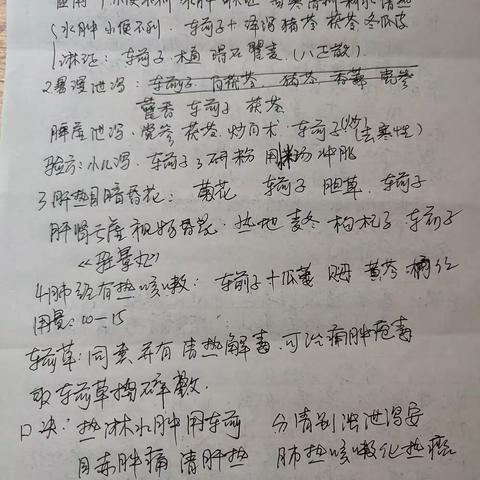 应用 1 小便不利 水肿 淋证
水肿 小便不利. 车前子+泽泻 猪苓 茯苓 冬瓜皮
淋证: 车前子 木通 滑石 瞿麦 (八正散)
2 暑湿泄泻: 车前子 白茯苓, 猪苓 香薷
藿香 车前子 茯苓
脾虚泄泻. 党参 茯苓 炒白术. 车前子(炒)(去寒性)
验方: 小儿泻. 车前子 研粉 用米汤冲服
3 肝热目暗昏花: 菊花 车前子 胆草. 车前子
肝肾亏虚 视物昏花: 热地 麦冬 枸杞子 车前子
《驻景丸》
4 肺经有热咳嗽: 车前子+瓜蒌 贝母 黄芩
用量: 10-15
车前草: 同素 并有 清热解毒. 可治痈肿疮毒
取 车前草捣碎敷.
口决: 热淋水肿用车前 分清别浊泄泻安
目赤肿痛清肝热 肺热咳嗽化热痰